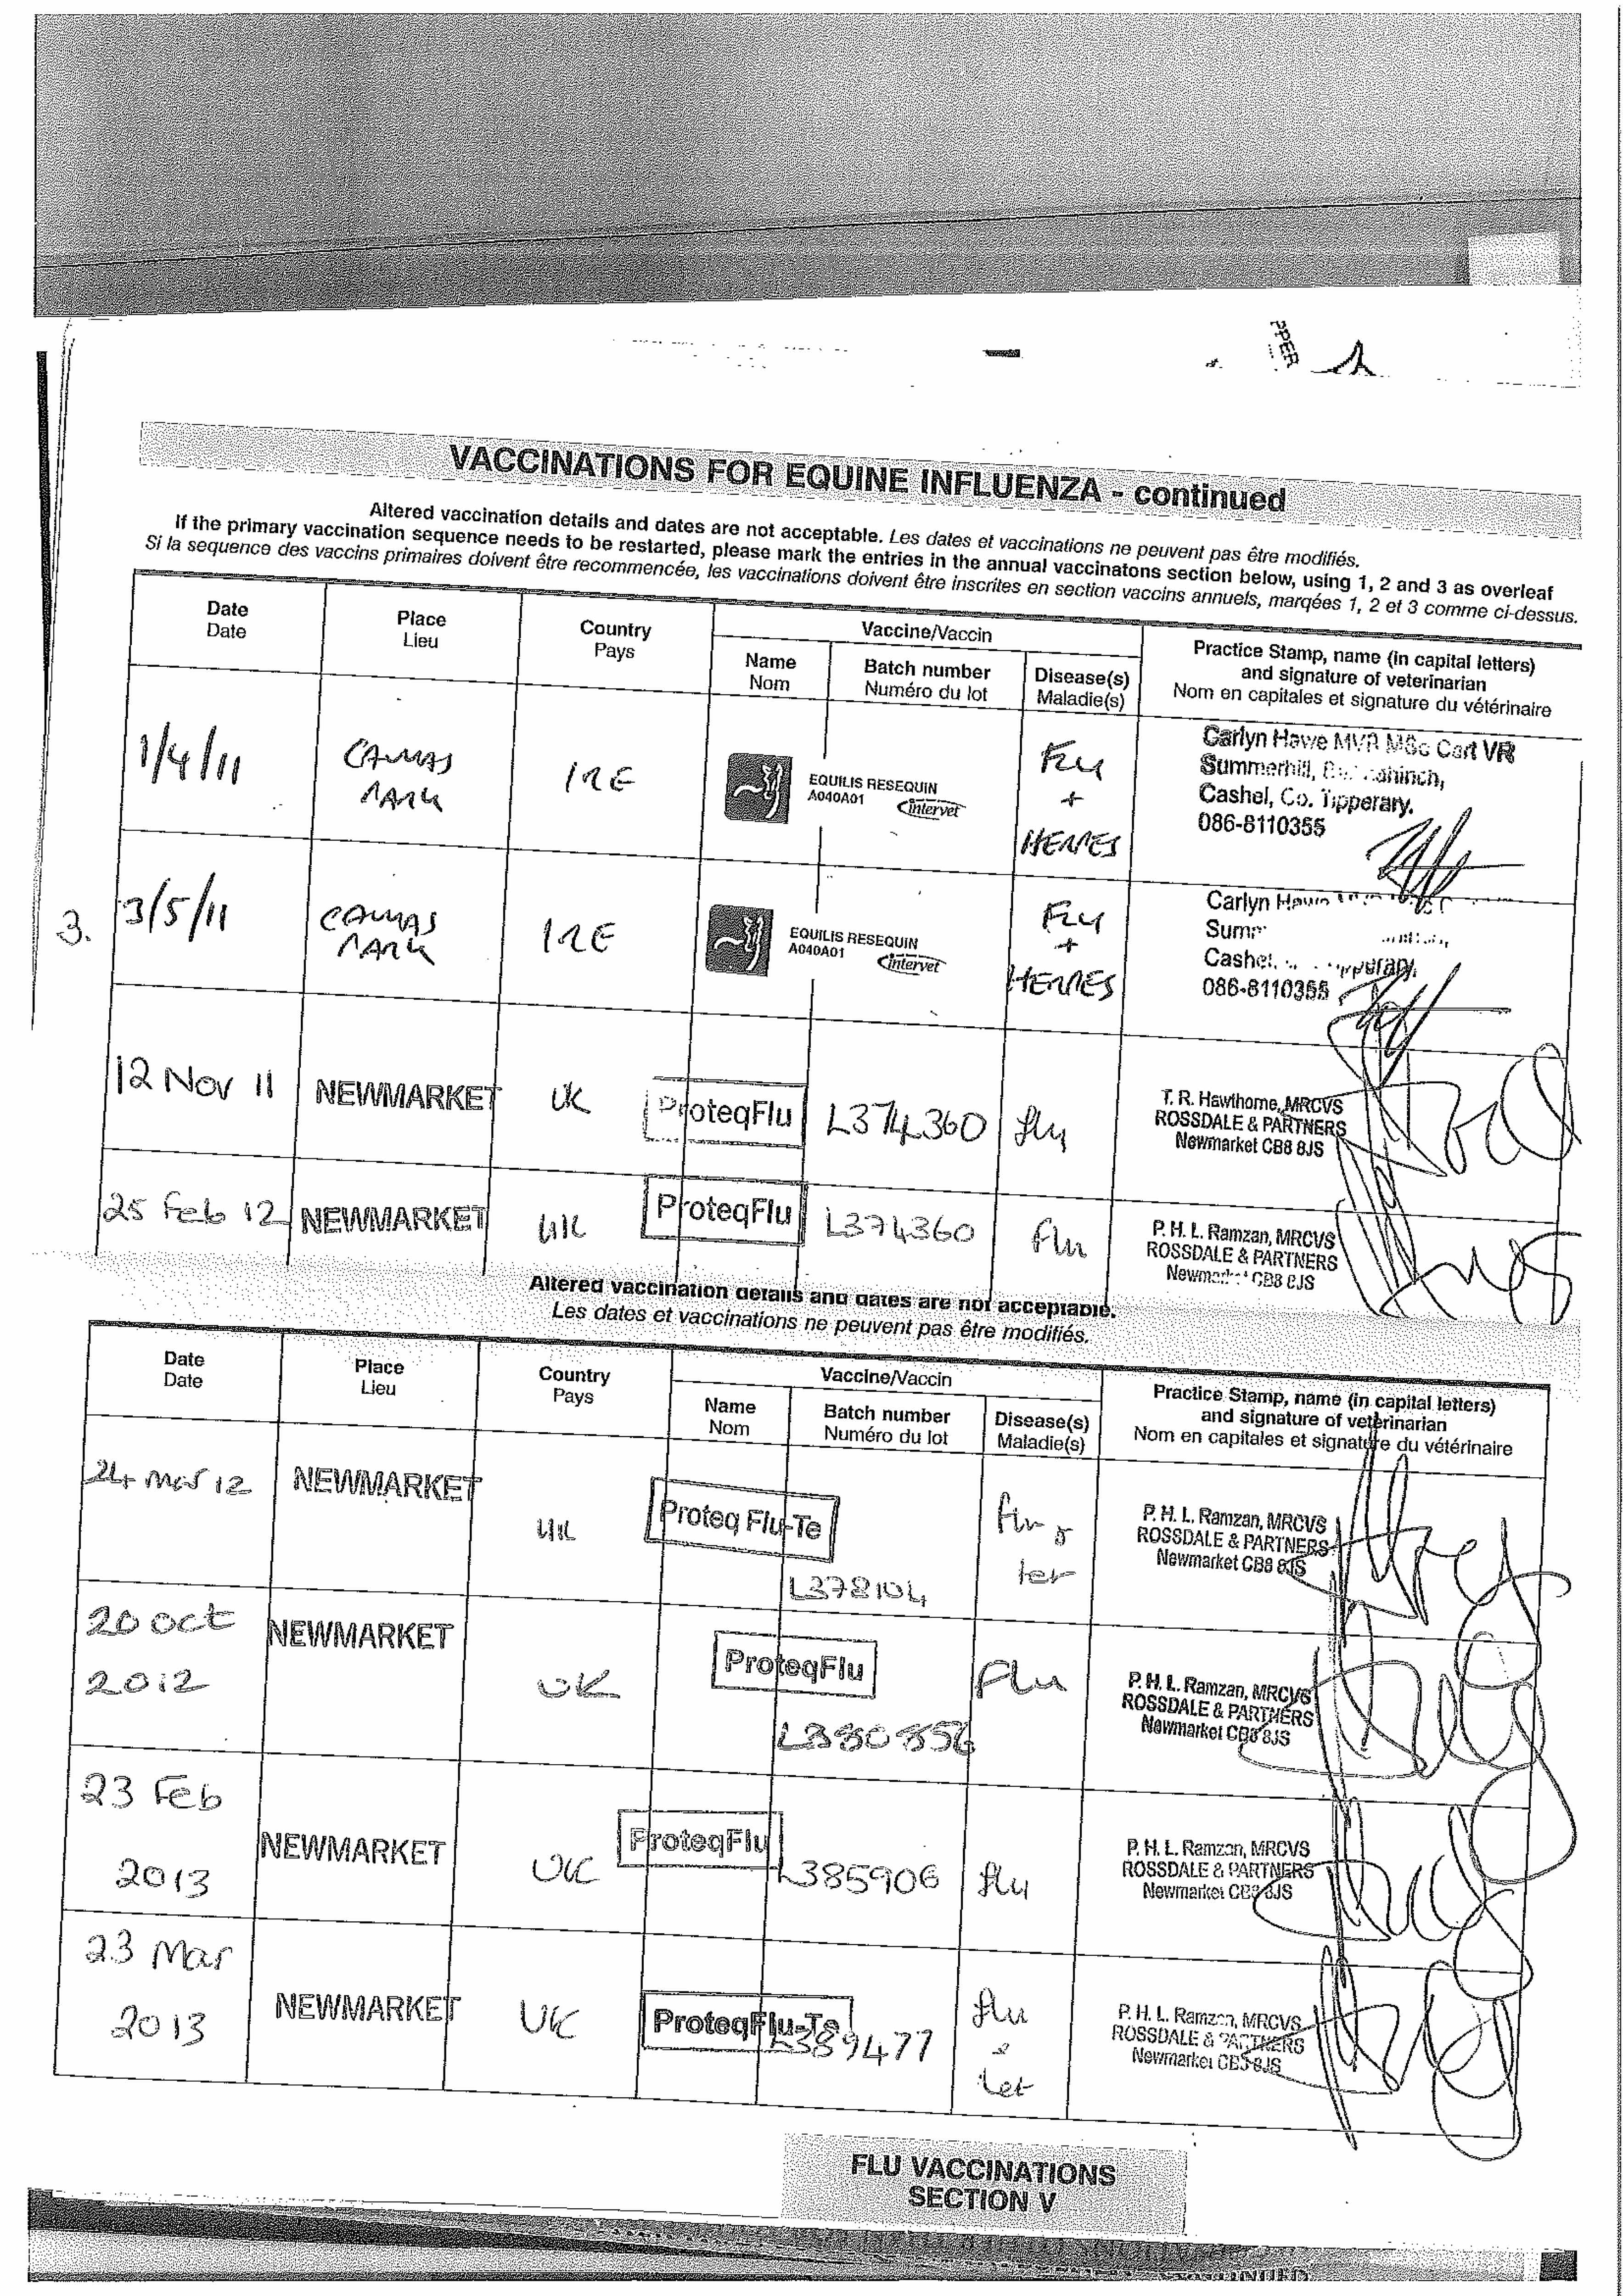 PPER
VACCINATIONS FOR EQUINE INFLUENZA - continued
Altered vaccination details and dates are not acceptable. Les dates et vaccinations ne peuvent pas être modifiés.
If the primary vaccination sequence needs to be restarted, please mark the entries in the annual vaccinatons section below, using 1, 2 and 3 as overleaf
Si la sequence des vaccins primaires doivent être recommencée, les vaccinations doivent être inscrites en section vaccins annuels, marqées 1, 2 et 3 comme ci-dessus.
Date
Date
Place
Lieu
Country
Pays
Vaccine/Vaccin
Name
Nom
Batch number
Numéro du lot
Disease(s)
Maladie(s)
Practice Stamp, name (in capital letters)
and signature of veterinarian
Nom en capitales et signature du vétérinaire
1/4/11
CAMAS
PARK
IRE
EQUILIS RESEQUIN
A040A01
Intervet
FLU
+
HERPES
Carlyn Hawe MVR MSc Cert VR
Summerhill,
Cashel, Co. Tipperary.
086-8110355
3.
3/5/11
CAMAS
PARK
IRE
EQUILIS RESEQUIN
A040A01
Intervet
FLU
+
HERPES
Carlyn Hawe
Cashel,
086-8110355
12 Nov 11
NEWMARKET
UK
ProteqFlu
L374360
flu
T. R. Hawthorne, MRCVS
ROSSDALE & PARTNERS
Newmarket CB8 8JS
25 Feb 12
NEWMARKET
UK
ProteqFlu
L374360
flu
P. H. L. Ramzan, MRCVS
ROSSDALE & PARTNERS
Newmarket CB8 8JS
Altered vaccination details and dates are not acceptable.
Les dates et vaccinations ne peuvent pas être modifiés.
Date
Date
Place
Lieu
Country
Pays
Vaccine/Vaccin
Name
Nom
Batch number
Numéro du lot
Disease(s)
Maladie(s)
Practice Stamp, name (in capital letters)
and signature of veterinarian
Nom en capitales et signature du vétérinaire
24 Mar 12
NEWMARKET
UK
Proteq Flu-Te
L378104
flu &
tet
P. H. L. Ramzan, MRCVS
ROSSDALE & PARTNERS
Newmarket CB8 8JS
20 Oct
2012
NEWMARKET
UK
ProteqFlu
L380856
Flu
P. H. L. Ramzan, MRCVS
ROSSDALE & PARTNERS
Newmarket CB8 8JS
23 Feb
2013
NEWMARKET
UK
ProteqFlu
L385906
flu
P. H. L. Ramzan, MRCVS
ROSSDALE & PARTNERS
Newmarket CB8 8JS
23 Mar
2013
NEWMARKET
UK
ProteqFlu-Te
L389477
flu
&
tet
P. H. L. Ramzan, MRCVS
ROSSDALE & PARTNERS
Newmarket CB8 8JS
FLU VACCINATIONS
SECTION V